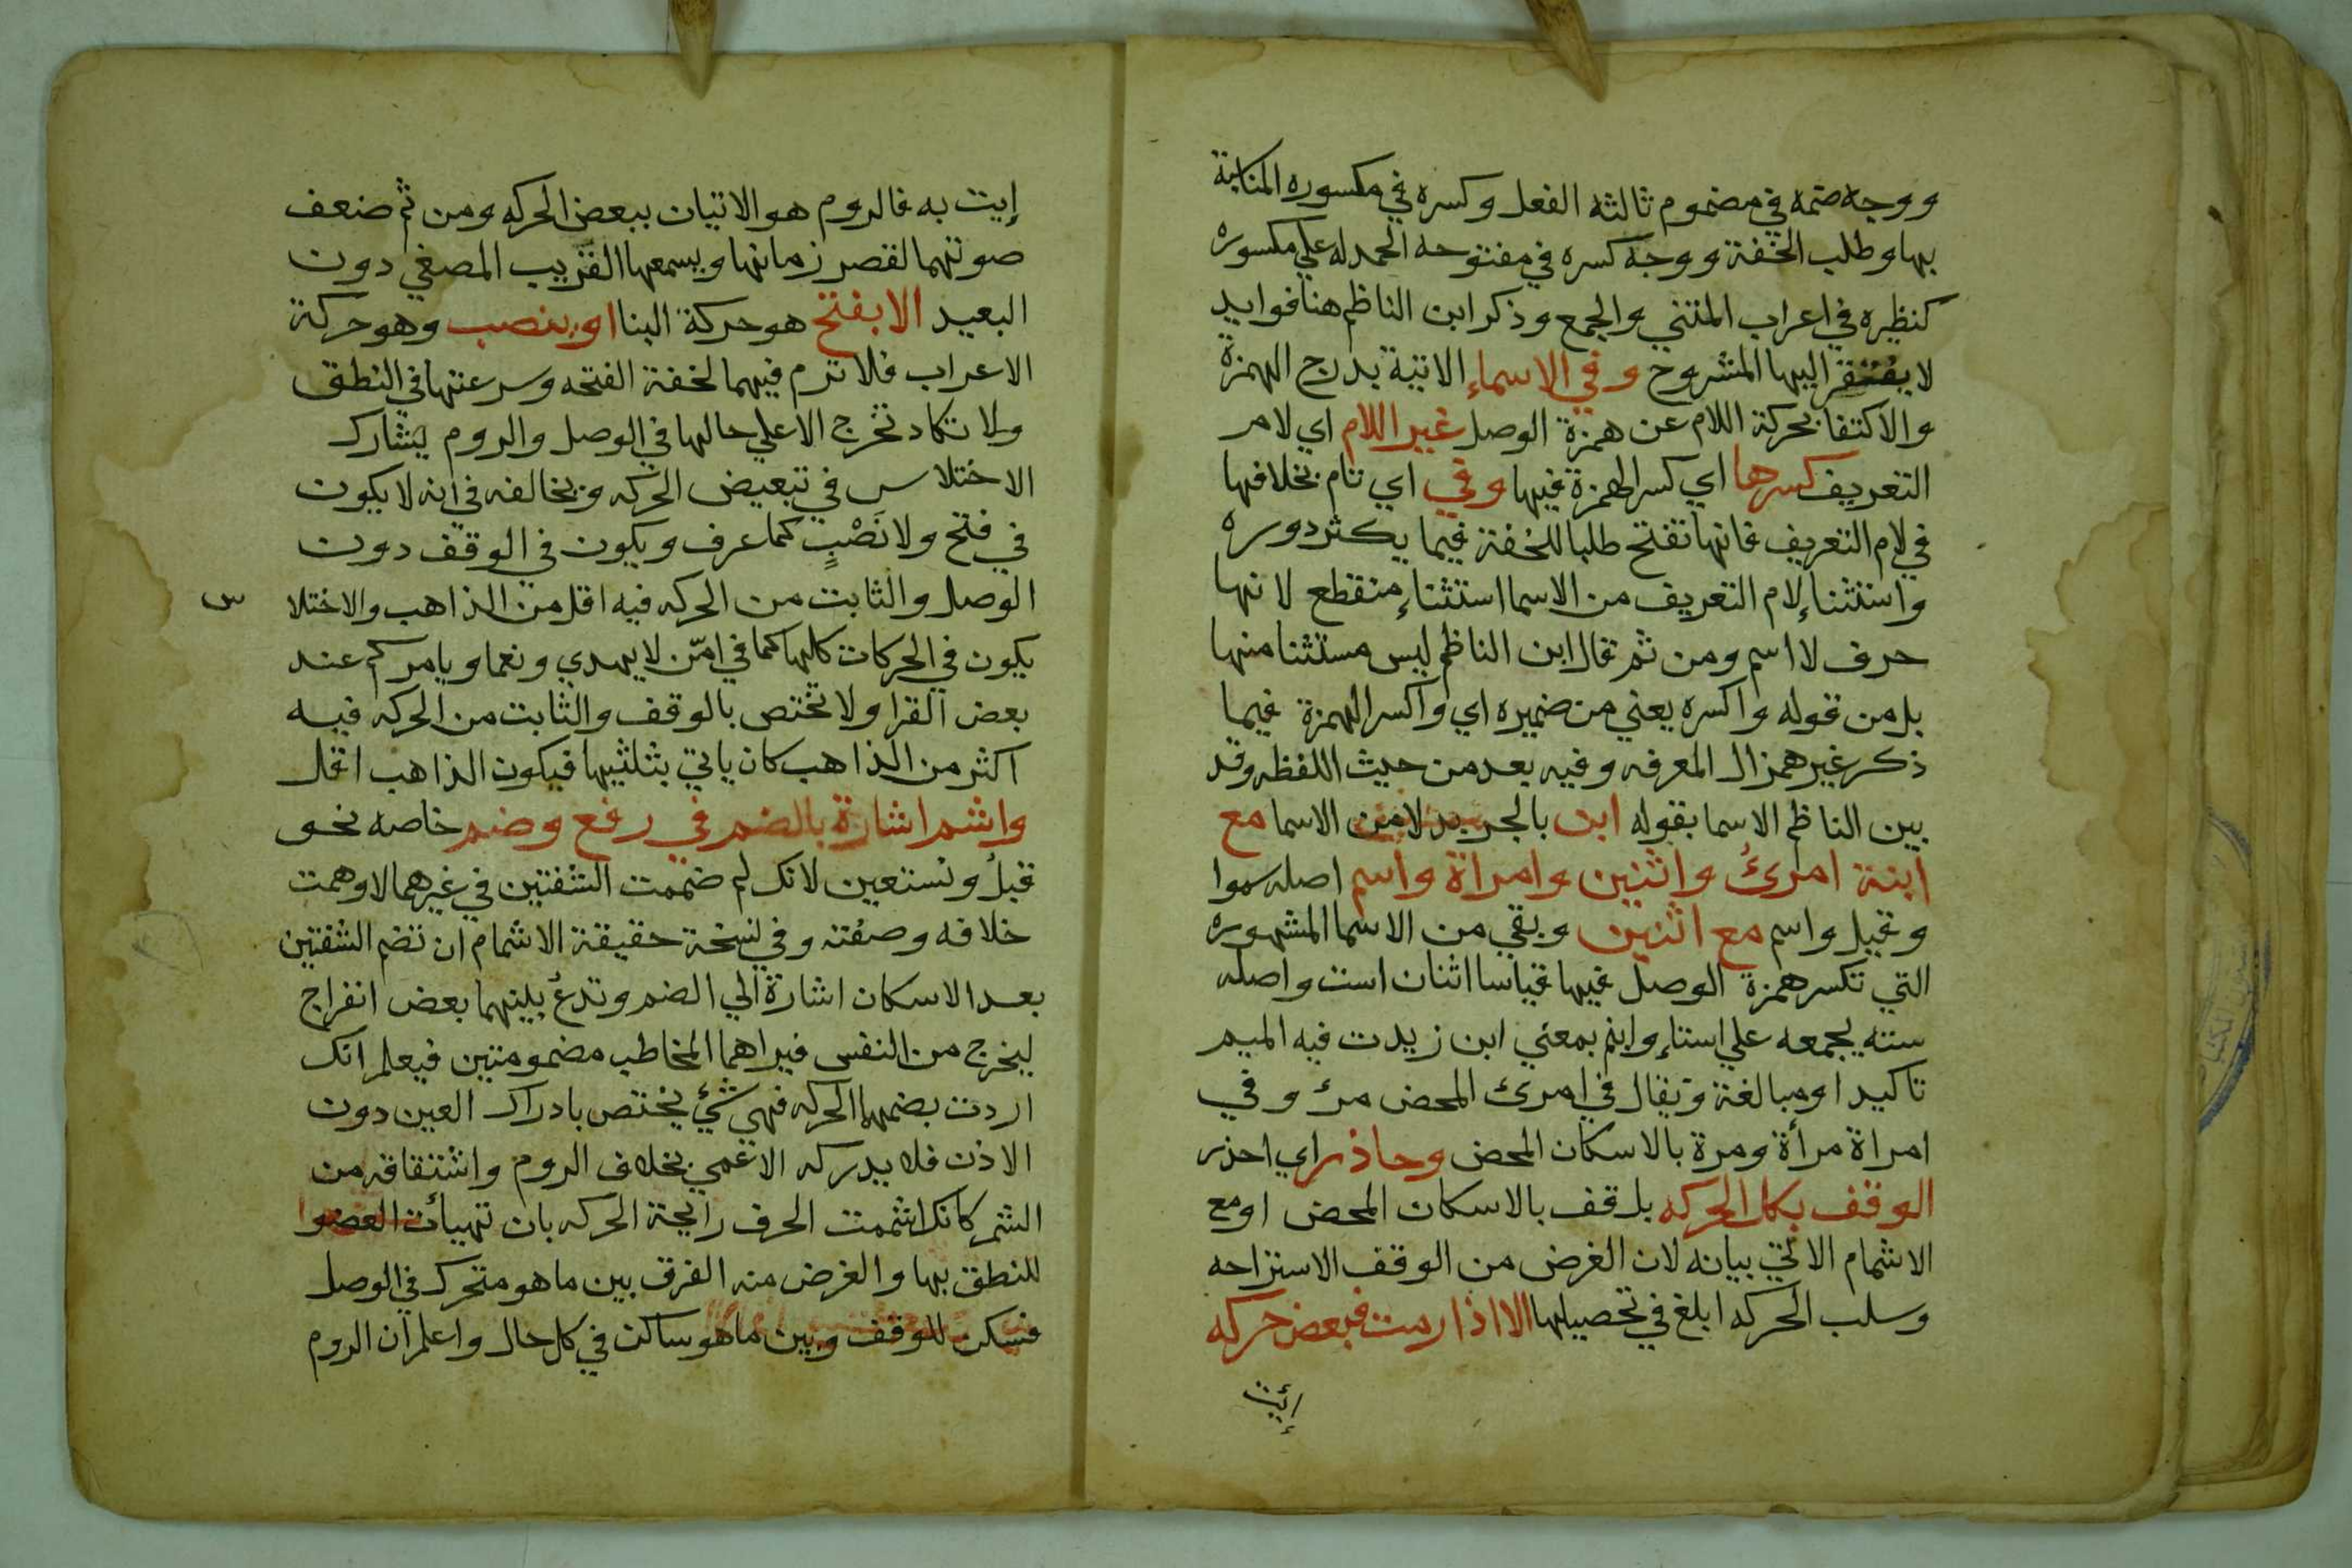 ووجه ضمه في مضموم ثالثه الفعل وكسره في مكسوره المناسبة
بها وطلب الخفة ووجه كسره في مفتوحه الحمد له علي مكسوره
كنظيره في اعراب المثني والجمع وذكر ابن الناظم هنا فوايد
لا يفتقر اليها المشروح وفي الاسماء الاتية بدرج الهمزة
والاكتفا بحركة اللام عن همزة الوصل غير اللام اي لامر
التعريف كسرها اي كسر الهمزة فيها وفي اي تام بخلافها
في لام التعريف فانها تفتح طلبا للخفة فيما يكثر دوره
واستثناء لام التعريف من الاسما استثناء منقطع لانها
حرف لا اسم ومن ثم قال ابن الناظم ليس مستثنا منها
بل من قوله واكسره يعني من ضميره اي واكسر الهمزة فيما
ذكر غير همز ال المعرفه وفيه بعد من حيث اللفظ وقد
بين الناظم الاسما بقوله ابن بالجر بدلا من الاسما مع
ابنة امرئ واثنين وامراة واسم اصله سموا
وقيل واسم مع اثنين وبقي من الاسما المشهوره
التي تكسر همزة الوصل فيها قياسا اثنان است واصله
سته لجمعه علي استاء وابنم بمعني ابن زيدت فيه الميم
تاكيدا ومبالغة ويقال في امرئ المحض مرء وفي
امراة مرأة ومرة بالاسكان المحض وحاذر اي احذر
الوقف بكل الحركه بل قف بالاسكان المحض او مع
الاشمام الاتي بيانه لان الغرض من الوقف الاستراحه
وسلب الحركه ابلغ في تحصيلها الا اذا رمت فبعض حركه
إيت
إيت به فالروم هو الاتيان ببعض الحركه ومن ثم ضعف
صوتهما لقصر زمانها ويسمعها القريب المصغي دون
البعيد الا بفتح هو حركة البنا او بنصب وهو حركة
الاعراب فلا ترم فيهما لخفة الفتحه وسرعتها في النطق
ولا تكاد تخرج الا علي حالها في الوصل والروم يشارك
الاختلاس في تبعيض الحركه ويخالفه في انه لا يكون
في فتح ولا نَصْبٍ كما عرف ويكون في الوقف دون
الوصل والثابت من الحركه فيه اقل من الذاهب والاختلا س
يكون في الحركات كلها كما في امّن لا يهدي ونعما ويامركم عند
بعض القرا ولا تختص بالوقف والثابت من الحركه فيه
اكثر من الذاهب كان ياتي بثلثيها فيكون الذاهب اقل
واشم اشارة بالضم في رفع وضم خاصه نحو
قبلُ ونستعين لانك لم ضممت الشفتين في غيرهما لاوهمت
خلافه وصفته وفي نسخة حقيقة الاشمام ان تضم الشفتين
بعد الاسكان اشارة الي الضم وتدعُ بينهما بعض انفراج
ليخرج من النفس فيراهما المخاطب مضمومتين فيعلم انك
اردت بضمها الحركه فهي شئ يختص بادراك العين دون
الاذن فلا يدركه الاعمي بخلاف الروم واشتقاقه من
الشم كانك اشممت الحرف رايحة الحركه بان تهيأت العضوا
للنطق بها والغرض منه الفرق بين ما هو متحرك في الوصل
فسكن للوقف وبين ما هو ساكن في كل حال واعلم ان الروم